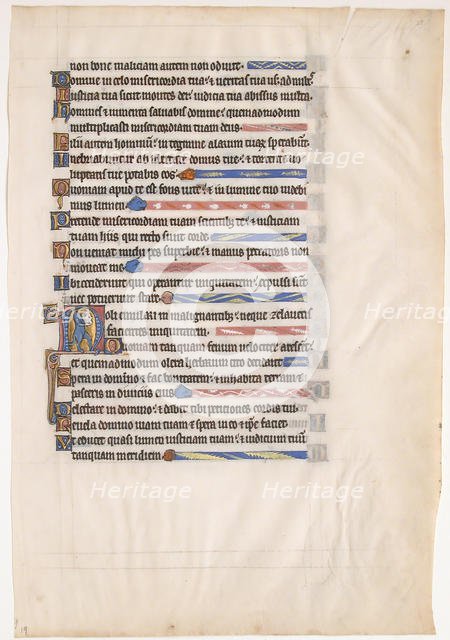 non bone maliciam autem non odivit.
Domine in celo misericordia tua: & veritas tua usq; ad
Iusticia tua sicut montes dei iudicia tua abissus multa.
Homines & iumenta salvabis domine: quemadmodum
multiplicasti misericordiam tuam deus.
Filii autem hominum: in tegmine alarum tuar
ab domus tue: & torrente vo
luptatis tue potabis eos.
Quoniam apud te est fons vite: & in lumine tuo videbi
mus lumen.
Pretende misericordiam tuam scientibus te: & iusticiam
tuam hiis qui recto sunt corde.
Non veniat michi pes superbie: & manus peccatoris non
moveat me.
Ibi ceciderunt qui operantur iniquitatem: expulsi sunt
nec potuerunt stare.
Noli emulari in malignantibus: neque zelaveris
facientes iniquitatem.
Quoniam tanquam fenum velociter arescent
et quemadmodum olera herbarum cito decident
Spera in domino & fac bonitatem: & inhabita terram &
pasceris in diviciis eius
Delectare in domino: & dabit tibi peticiones cordis tui.
Revela domino viam tuam & spera in eo & ipse faciet.
Et educet quasi lumen iusticiam tuam: & iudicium tuum
tanquam meridiem
19
Heritage
Heritage
Heritage
Heritage
Heritage